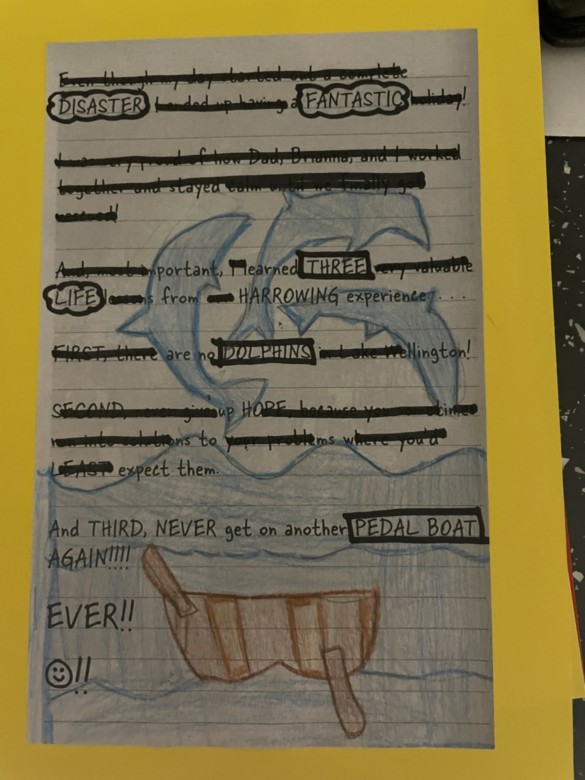 Even though my day started out a complete
DISASTER I ended up having a FANTASTIC holiday!
I was very proud of how Dad, Brianna, and I worked
together and stayed calm until we finally got
rescued!
And, most important, I learned THREE very valuable
LIFE lessons from HARROWING experience. . . .
FIRST, there are no DOLPHINS in Lake Wellington!
SECOND, never give up HOPE, because you sometimes
run into solutions to your problems where you'd
LEAST expect them.
And THIRD, NEVER get on another PEDAL BOAT
AGAIN!!!!
EVER!!
☺!!